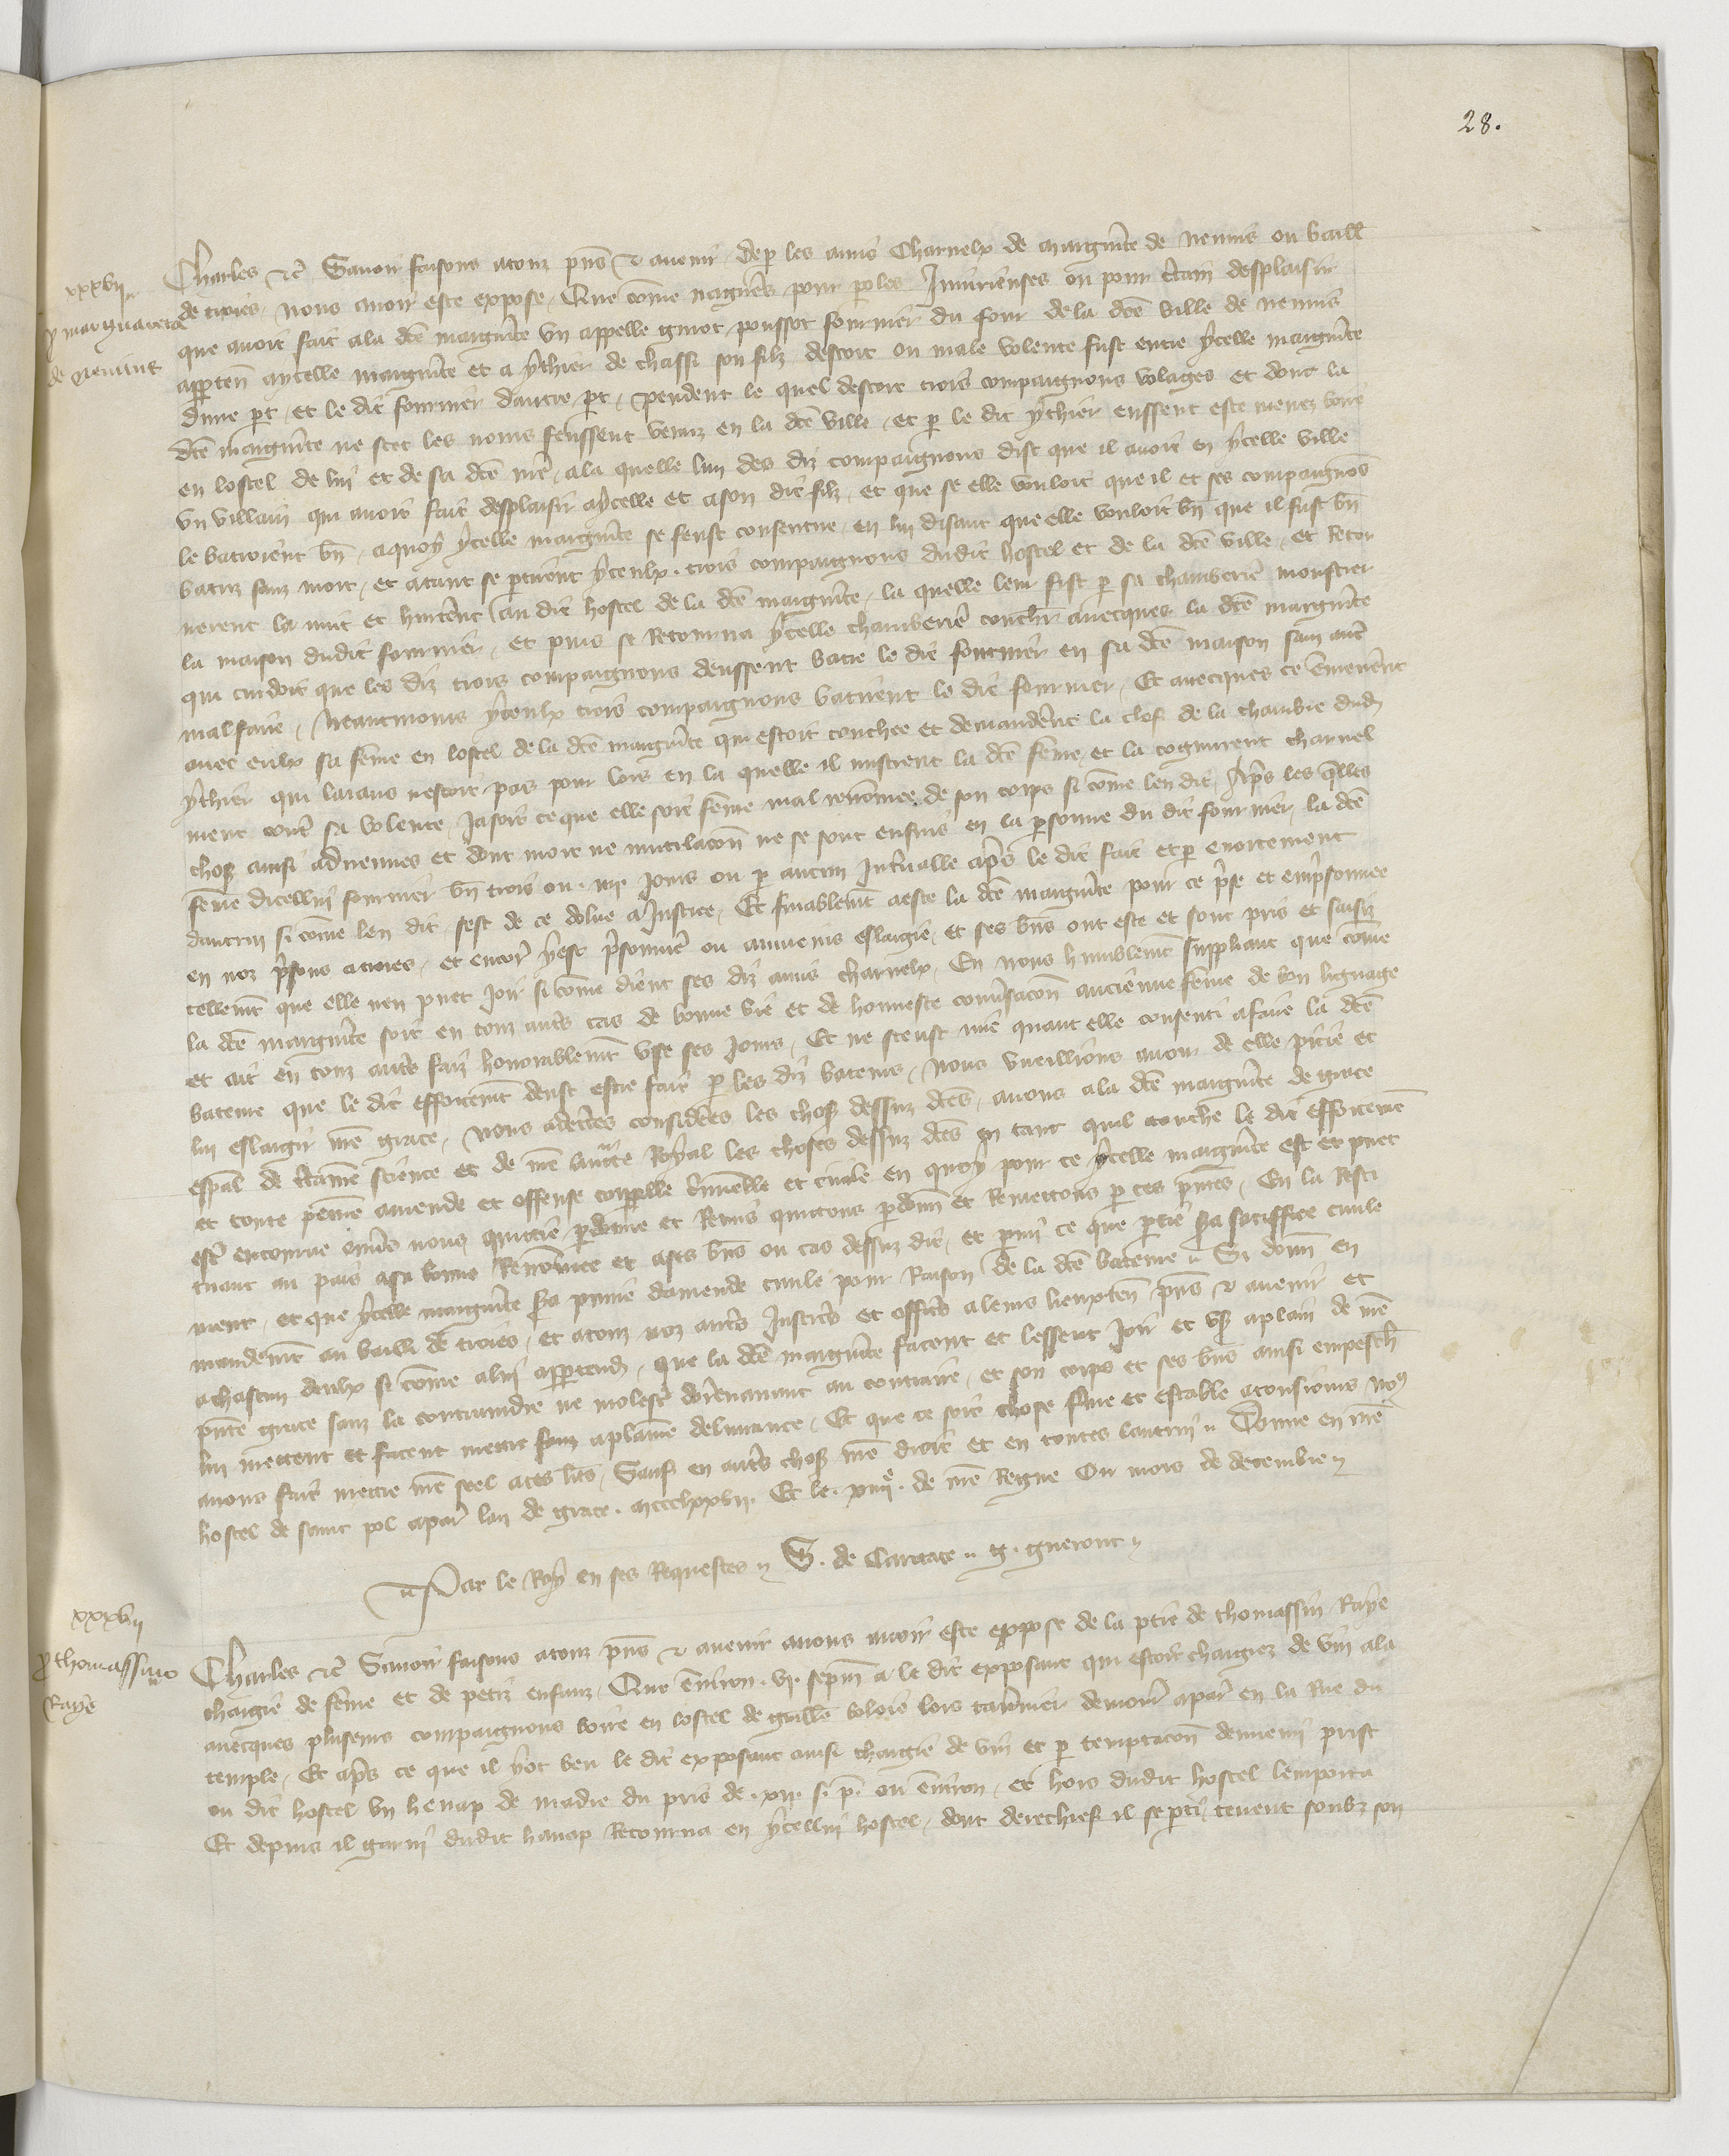 28.
xxxvii
p marguareta
de nevint
Charles etc Savoir faisons a touz p̄ns et avenir de p les amis charnelx de marguerite de nemis ou baill
de troies nous avoir este expose Que cōme nagueres pour poles Iniurieuses ou pour c̄tain desplaisir
que avoit fait a la dcē marguīte vn appelle gniot poussot fournier du four de la dcē ville de nemis
apptēn a ycelle marguīte et a ythier de chassi son filz descort ou male volente fust entre ycelle marguīte
dune pt et le dit fournier dautre pt pendent le quel descort trois compaignons volages et dont la
dcē marguīte ne scet les noms feussent venuz en la dcē ville et p le dit ythier eussent este menez boire
en lostel de lui et de sa dcē mē a la quelle lun des diz compaignons dist que il avoit en ycelle ville
vn villain qui avoit fait desplaisir a ycelle et a son dit filz et que se elle vouloit que il et ses compaignōs
le batroient bn̄ a quoy ycelle marguīte se feust consentue en lui disant que elle vouloit bn̄ que il fust bn̄
batuz sanz mort et atant se ptirent yceulx trois compaignons dudit hostel et de la dcē ville et retor
nerent la nuit et hurterent au dit hostel de la dcē marguīte la quelle leur fist p sa chamberiē monstrer
la maison dudit fournier et puis se retourna ycelle chamberiē couchr avecques la dcē marguīte
qui cuidoit que les diz trois compaignons deussent batre le dit fournier en sa dcē maison sanz aut̄
mal faire Neantmoins yceulx trois compaignons batirent le dit fournier Et avecques ce ēmenerent
avec eulx sa fēme en lostel de la dcē marguīte qui estoit couchee et demanderent la clef de la chambre dud
ythier qui laians nestoit pas pour lors en la quelle il mistrent la dcē fēme et la cognurent charnel
ment cont̄ sa volente Ja soit ce que elle soit fēme mal renōmee de son corps si cōme len dit Ap̄s les q̄lles
choses ainsi advenues et dont mort ne mutilacōn ne se sont ensuis en la psonne du dit fournier la dcē
fēme dicellui fournier bn̄ trois ou iiij jours ou p aucun Int̄valle ap̄s le dit fait et p enortement
dautrui si cōme len dit sest de ce dolue a Justice Et finablemt a este la dcē marguīte pour ce p̄se et emp̄sonnee
en noz p̄sons a troies et encor y est p̄sonniē ou au moins eslargie et ses bn̄s ont este et sont pris et saisiz
tellemt que elle nen puet joir si cōme dient ses diz amis charnelx En nous humblemt suppliant que cōme
la dcē marguīte soit en touz aut̄s cas de bonne vie et de honneste conv̄sacōn ancienne fēme de bon lignage
et ait en touz aut̄s faiz honorablemt vse ses jours Et ne sceust mie quant elle consenti a faire la dcē
bateure que le dit efforcemt deust estre fait p les diz bateurs Nous vueillions avoir de elle pitie et
lui eslargir nr̄e grace Nous adecertes considerees les choses dessuz dcēs avons a la dcē marguīte de grace
esp̄al de c̄taine science et de nr̄e auct̄te Royal les choses dessuz dcēs en tant quil touche le dit efforcemē
et toute peine amende et offense corpelle c̄minelle et civile en quoy pour ce ycelle marguīte est et puet
est̄ encourue envers nous quittie pdonne et remis quittons pdonn̄ et remettons p ces p̄ntes En la resti
tuant au pais a sa bonne renōmee et a ses bn̄s ou cas dessuz dit et pmi ce que ptie sa satisffce civile
ment et que ycelle marguīte sa punie damende civile pour raison de la dcē bateure Si donn̄ en
mandemt au bailli de troies et a touz noz aut̄s justic̄s et offic̄s a leurs lieuxten̄ p̄ns et avenir et
a chascun deulx si cōme a lui apptend que la dcē marguīte facent et lessent joir et vser a plain de nr̄e
p̄nte grace sanz la contraindre ne molest̄ dorenavant au contraire et son corps et ses bn̄s ainsi empesch
lui mettent et facent mettre sanz a plaine delivrance Et que ce soit chose ferme et estable a tousiours nous
avons fait mettre nr̄e seel a ces lr̄es Sauf en aut̄s choses nr̄e droit et en toutes lautrui Donne en nr̄e
hostel de saint pol a par̄ lan de grace mccclxxvii Et le xiiije de nr̄e Regne Ou mois de decembre
Par le Roy en ses Requestes G. de Caritate g. gueront
xxxvii
p thomassino
Raye
Charles etc Savoir faisons a touz p̄ns et avenir avons avoir este expose de la ptie de thomassin Raye
chargie de fēme et de petiz enfanz Que ēviron vj sepm̄ a le dit exposant qui estoit chargiez de vin ala
avecques plusieurs compaignons boire en lostel de guillē volois lors tavernier demour̄ a par̄ en la Rue du
temple Et ap̄s ce que il y ot beu le dit exposant ainsi chargie de vin et p temptacōn dennemi prist
ou dit hostel vn henap de madre du pris de xij s. p. ou ēviron et hors dudit hostel lemporta
Et depuis il garni dudit hanap retourna en ycellui hostel dont derechief il se pti tenent soubz son